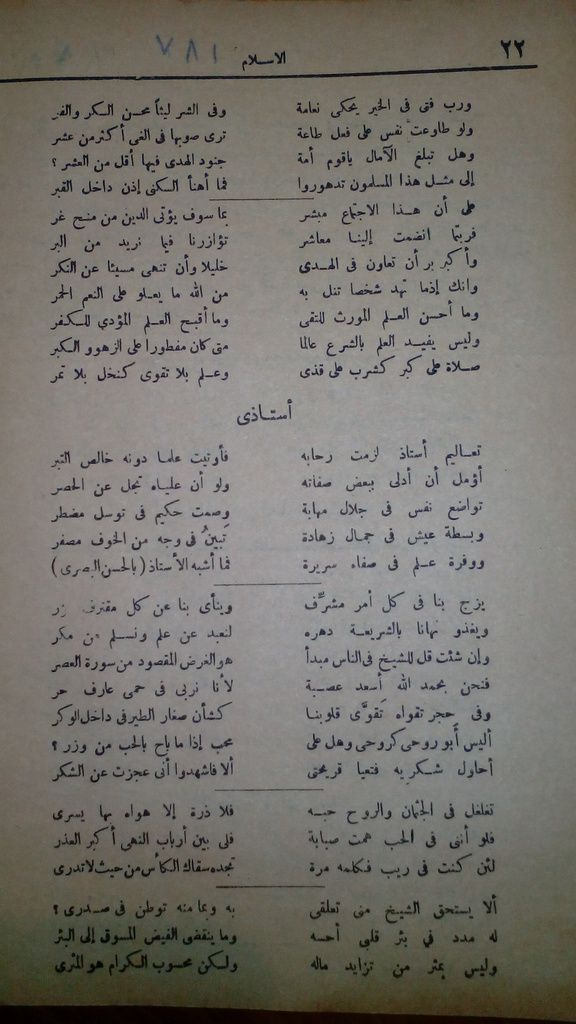 ٢٢
الاسلام
٧٨١
ورب فتى فى الخير يحكى نعامة وفى الشر ليثاً محسن الكر والفر
ولو طاوعت نفس على فعل طاعة ترى صوبها فى الغى أكثر من عشر
وهل تبلغ الآمال ياقوم أمة جنود الهدى فيها أقل من العشر ؟
إلى مثل هذا المسلمون تدهوروا فما أهنأ السكنى إذن داخل القبر
على أن هذا الاجتماع مبشر بما سوف يؤتى الدين من منح غر
فربما انضمت إلينا معاشر تؤازرنا فيما نريد من البر
وأكبر بر أن تعاون فى الهدى خليلا وأن تنهى مسيئا عن النكر
وانك إذما تهد شخصا تنل به من الله ما يعلو على النعم الحمر
وما أحسن العلم المورث للتقى وما أقبح العلم المؤدي للكفر
وليس يفيد العلم بالشرع عالما متى كان مفطورا على الزهو والكبر
صلاة على كبر كشرب على قذى وعلم بلا تقوى كنخل بلا تمر
أستاذى
تعاليم أستاذ لزمت رحابه فأوتيت علما دونه خالص التبر
أؤمل أن أدلى ببعض صفاته ولو أن علياه تجل عن الحصر
تواضع نفس فى جلال مهابة وصمت حكيم فى توسل مضطر
وبسطة عيش فى جمال زهادة تبين فى وجه من الخوف مصفر
ووفرة علم فى صفاء سريرة فما أشبه الأستاذ (بالحسن البصرى)
يزج بنا فى كل أمر مشرف وينأى بنا عن كل مقترف زر
ويغذو نهانا بالشريعة دهره لنعبد عن علم ونسلم من مكر
وإن شئت قل للشيخ فى الناس مبدأ هو الغرض المقصود من سورة العصر
فنحن بحمد الله أسعد عصبة لأنا نربى فى حمى عارف حر
وفى حجر تقواه تقوى قلوبنا كشأن صغار الطير فى داخل الوكر
أليس أبو روحى كروحى وهل على محب إذا ما باح بالحب من وزر ؟
أحاول شكريه فتعيا قريحتى ألا فاشهدوا أنى عجزت عن الشكر
تغلغل فى الجثمان والروح حبه فلا ذرة إلا هواه بها يسرى
فلو أننى فى الحب همت صبابة فلى بين أرباب النهى أكبر العذر
لئن كنت فى ريب فكلمه مرة تجده سقاك الكأس من حيث لا تدرى
ألا يستحق الشيخ منى تعلقى به وبما منه توطن فى صدرى ؟
له مدد فى بئر قلبى أحسه وما ينقضى الفيض المسوق إلى البئر
وليس بمثر من تزايد ماله ولكن محسوب الكرام هو المثرى